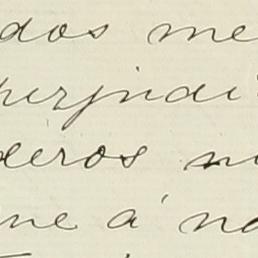 dos me
perjudi
deros m
ne á no